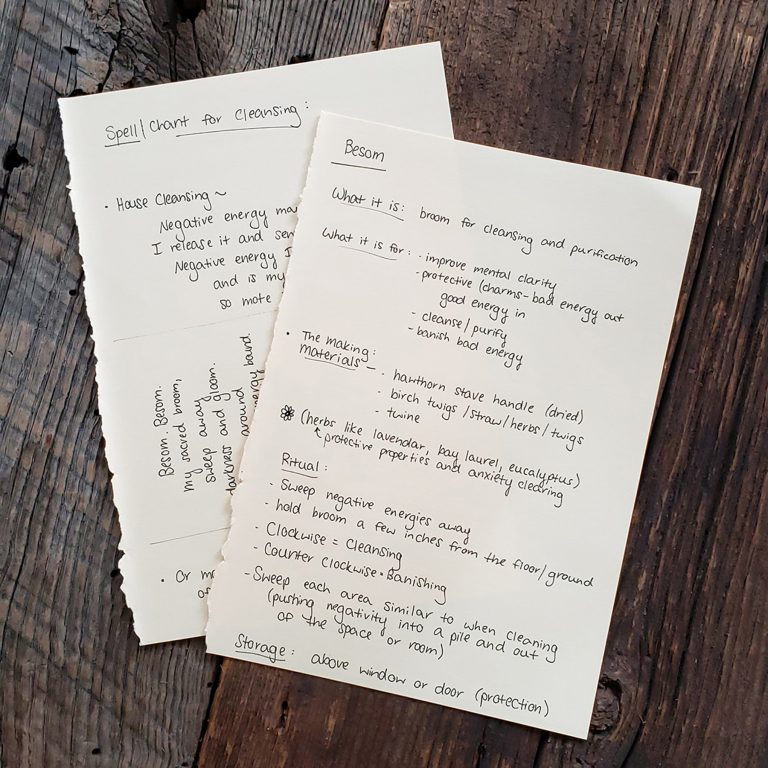 Spell/Chant for Cleansing:
• House Cleansing ~
Negative energy
I release it and
Negative energy
and is my
so mote
Besom. Besom.
my sacred broom,
sweep away
darkness and gloom.
around
baird.
• Or
Besom
What it is: broom for cleansing and purification
What it is for: - improve mental clarity
- protective (charms - bad energy out
good energy in
- cleanse/purify
- banish bad energy
• The making:
materials - · hawthorn stave handle (dried)
· birch twigs/straw/herbs/twigs
· twine
(herbs like lavendar, bay laurel, eucalyptus)
protective properties and anxiety clearing
Ritual:
- Sweep negative energies away
- hold broom a few inches from the floor/ground
- Clockwise = Cleansing
- Counter Clockwise = Banishing
- Sweep each area similar to when cleaning
(pushing negativity into a pile and out
of the space or room)
Storage: above window or door (protection)